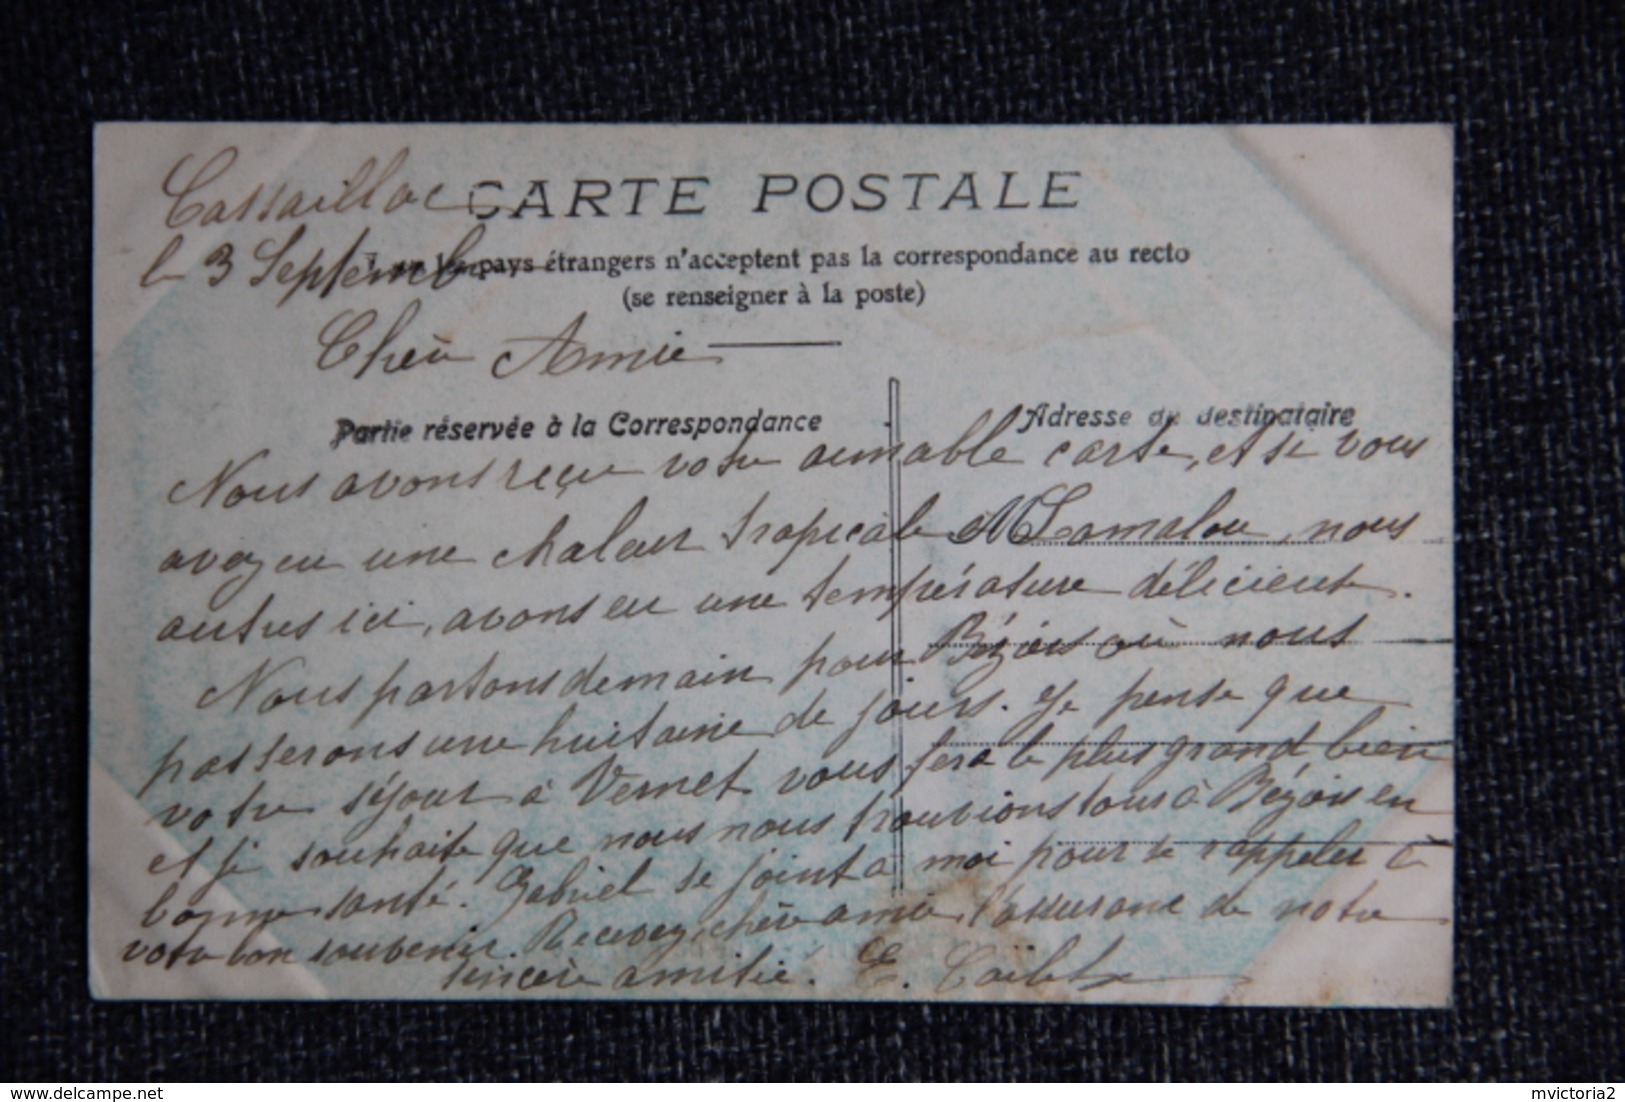 Cassaillac
CARTE POSTALE
le 3 Septembre
pays étrangers n'acceptent pas la correspondance au recto
(se renseigner à la poste)
Chère Amie
Partie réservée à la Correspondance
Adresse du destinataire
Nous avons reçu votre aimable carte, et si vous
avez eu une chaleur tropicale à Lamalou, nous
autres ici, avons eu une température délicieuse.
Nous partons demain pour Béziers où nous
passerons une huitaine de jours. Je pense que
votre séjour à Vernet vous fera le plus grand bien
et je souhaite que nous nous trouvions tous à Béziers en
bonne santé. Gabriel se joint à moi pour se rappeler à
votre bon souvenir. Recevez, chère amie, l'assurance de notre
sincère amitié. E.
delcampe.net
mvictoria2